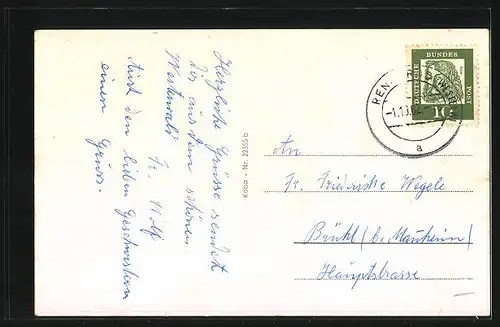 Herzliche Grüsse sendet
Dir aus dem schönen
Westerwald
Fr. Wolf
Auch den lieben Geschwistern
einen Gruss.
Koba - Nr. 22355 b
DEUTSCHE
BUNDES
POST
10
REN
-1.10.6
a
An
Fr. Friederike Wegele
Brühl (b. Manheim)
Hauptstrasse